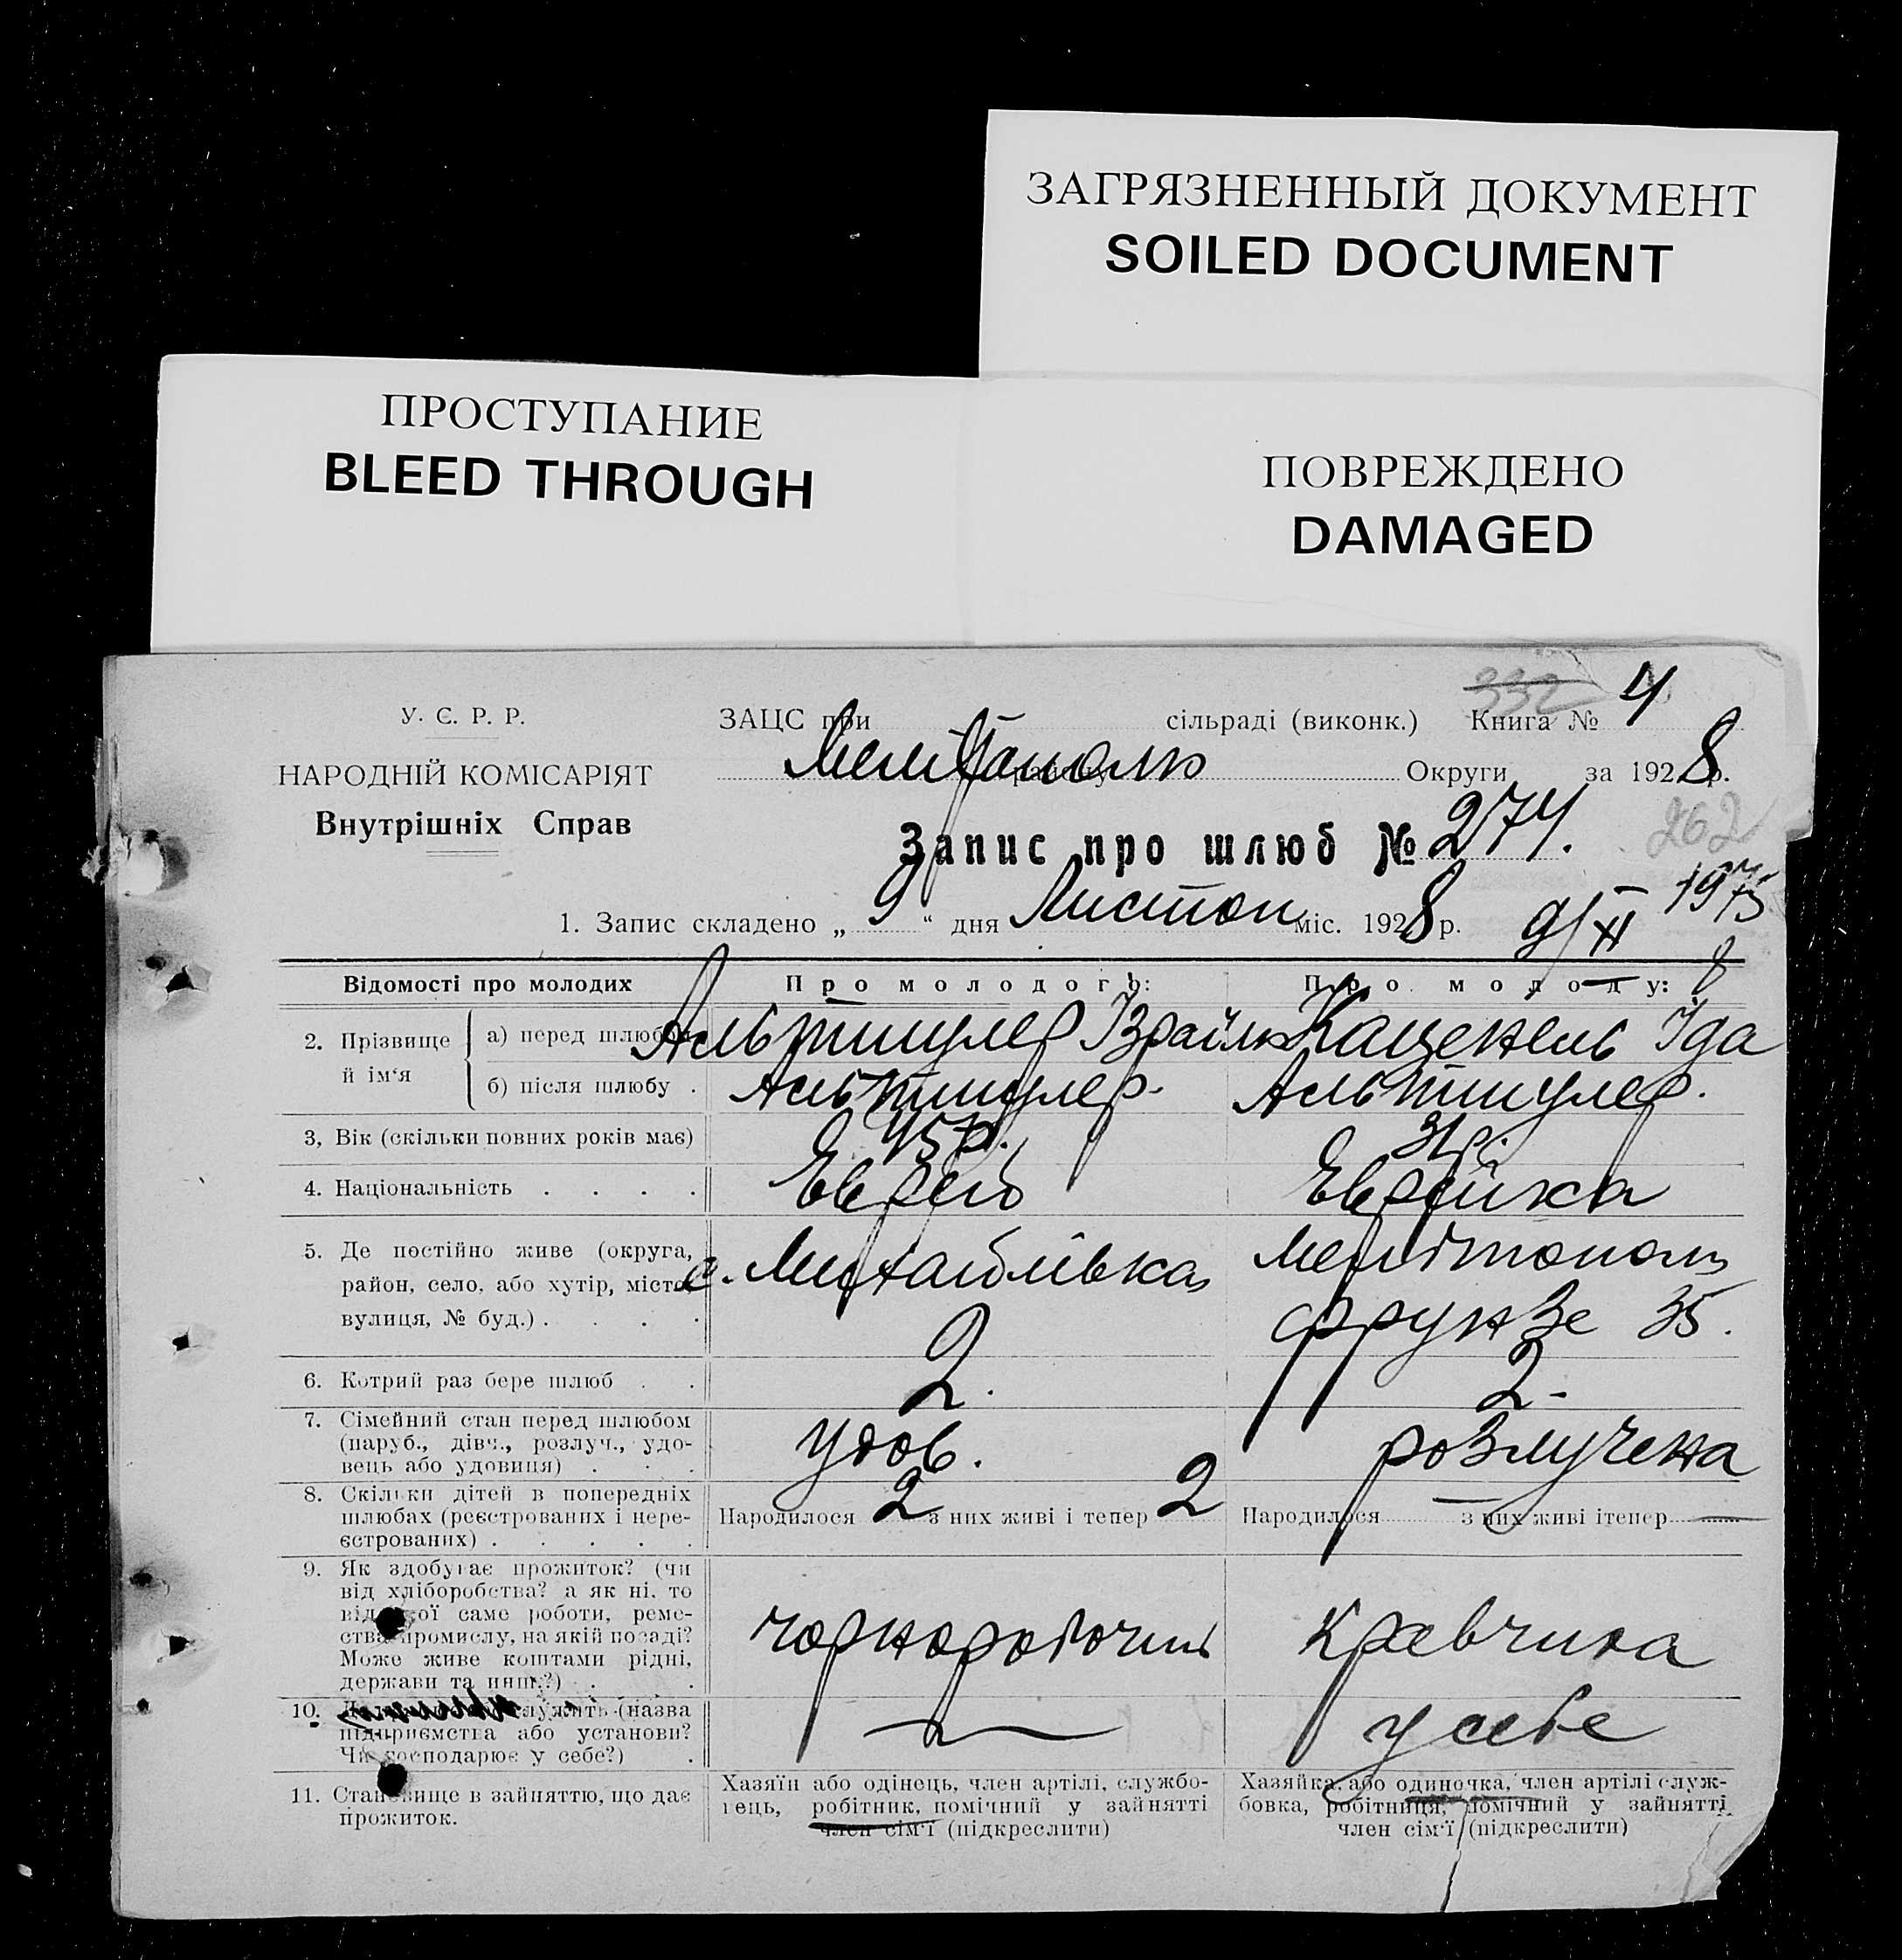 ЗАГРЯЗНЕННЫЙ ДОКУМЕНТ
SOILED DOCUMENT
ПРОСТУПАНИЕ
BLEED THROUGH
ПОВРЕЖДЕНО
DAMAGED
У. Є. Р. Р.
НАРОДНІЙ КОМІСАРІЯТ
Внутрішніх Справ
332
ЗАЦС при сільраді (виконк.) Книга № 4
району Округи за 1928 р.
Запис про шлюб № 274.
262
1. Запис складено „ 9 “ дня Листоп міс. 1928 р. 9/XI
Відомості про молодих
Про молодого:
Про молоду:
2. Прізвище й ім‘я
а) перед шлюбом
Альтшулер Ізраїль
Каценель Іда
б) після шлюбу .
Альтшулер.
Альтшулер.
3, Вік (скільки повних років має)
45 р.
31 р.
4. Національність . . . .
Еврей
Еврейка
5. Де постійно живе (округа,
район, село, або хутір, місто,
вулиця, № буд.) . . . .
с. Михайлівка
Мелітополь
Фрунзе 35.
6. Котрий раз бере шлюб . .
2.
2.
7. Сімейний стан перед шлюбом
(паруб., дівч., розлуч., удо-
вець або удовиця) . . .
удов.
розлучена
8. Скільки дітей в попередніх
шлюбах (реєстрованих і нере-
єстрованих) . . . . .
Народилося 2 з них живі і тепер 2
Народилося — з них живі ітепер —
9. Як здобуває прожиток? (чи
від хліборобства? а як ні, то
від якої саме роботи, реме-
ства, промислу, на якій посаді?
Може живе коштами рідні,
держави та инш.?) . .
чорноробочий
Кравчиха
10. служить (назва
підприємства або установи?
Чи господарює у себе?) .
—
у себе
11. Становище в зайняттю, що дає
прожиток.
Хазяїн або одінець, член артілі, службо-
вець, робітник, помічний у зайнятті
член сім‘ї (підкреслити)
Хазяйка, або одиночка, член артілі служ-
бовка, робітниця, помічний у зайнятті
член сім‘ї (підкреслити)